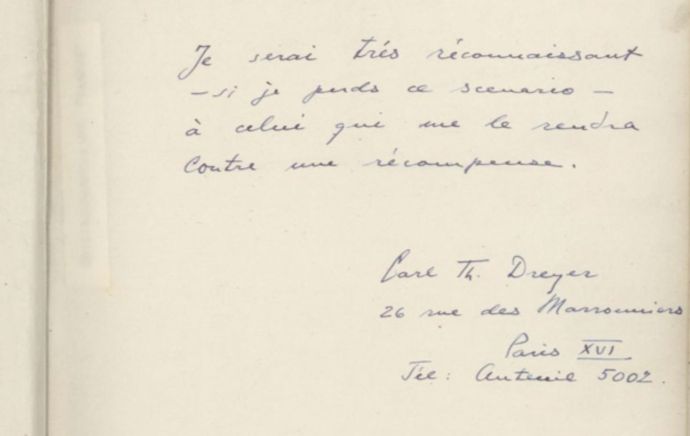 Je serai trés réconnaissant
– si je perds ce scenario –
à celui qui me le rendra
contre une récompense.
Carl Th. Dreyer
26 rue des Marronniers
Paris XVI
Tél: Auteuil 5002.